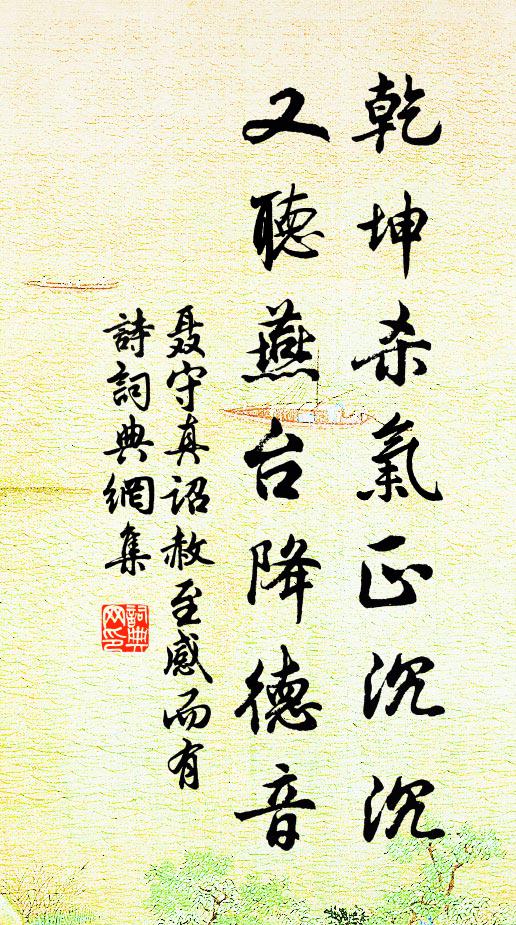 乾坤杀氣正沉沉
又聽燕台降德音
聂守真诏赦至感而有
詩詞典網集
詞典网印